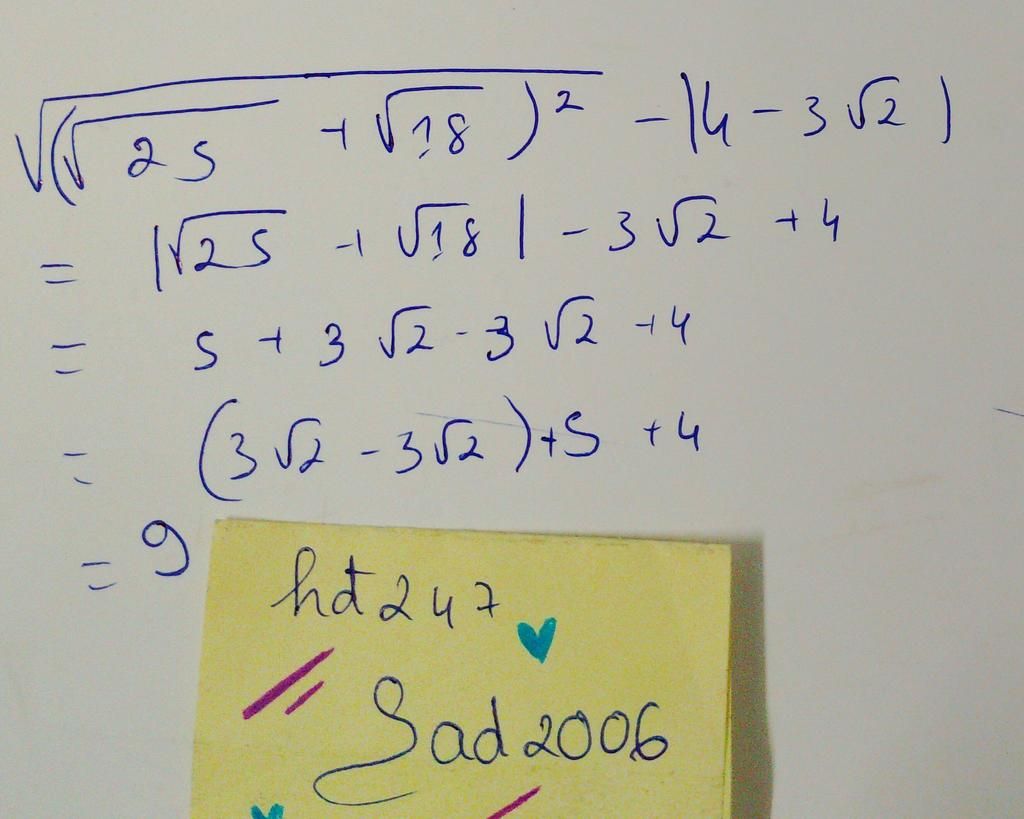 √(√25 + √18)² - |4 - 3√2|
= |√25 + √18| - 3√2 + 4
= 5 + 3√2 - 3√2 + 4
= (3√2 - 3√2) + 5 + 4
= 9
hdt247
Sad2006